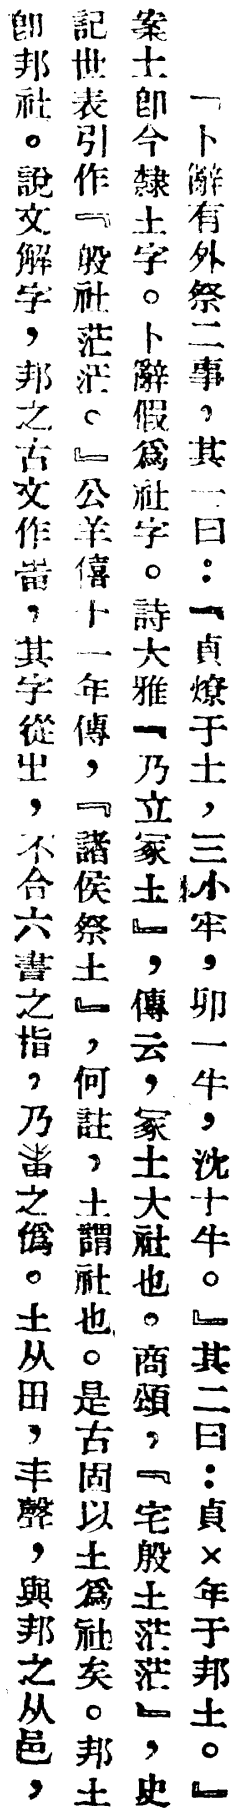 「卜辭有外祭二事，其一曰：『貞燎于土，三小牢，卯一牛，沈十牛。』其二曰：貞×年于邦土。』
案土卽今隸土字。卜辭假爲社字。詩大雅『乃立冢土』，傳云，冢土大社也。商頌，『宅殷土茫茫』，史
記世表引作『殷社茫茫。』公羊僖十一年傳，『諸侯祭土』，何註，土謂社也。是古固以土爲社矣。邦土
卽邦社。說文解字，邦之古文作𤰫，其字從㞢，不合六書之指，乃之僞。土从田，丰聲，與邦之从邑，